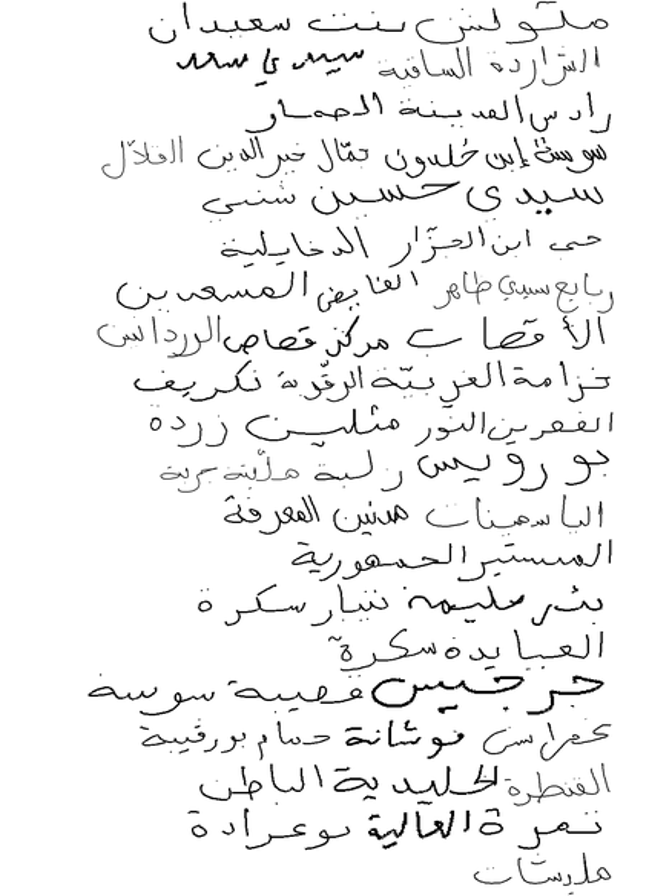 منقوش بنت سعيدان
الشراردة الساقية سيدي سعد
رادس المدينة الحصار
سوسة إبن خلدون تمّال خير الدين الفلاّل
سيدي حسين شنني
حي ابن الجزّار الدخايلية
ربايع سيدي ظاهر الفايض المسعدين
الأقصاب مركز قصاص الورداس
خزامة الغربيّة الرقّوبة نكريف
القعرين النّور متلين زردة
بورويس زلبة مدّينة جربة
الياسمينات مدنين المعرفة
المنستير الجمهورية
بئر حليمة نيبار سكرة
العبايدة سكرة
جرجيس قصيبة سوسة
غمراسن فوشانة حمام بورقيبة
القنطرة الخليدية الباطن
نمرة العالية بوعرادة